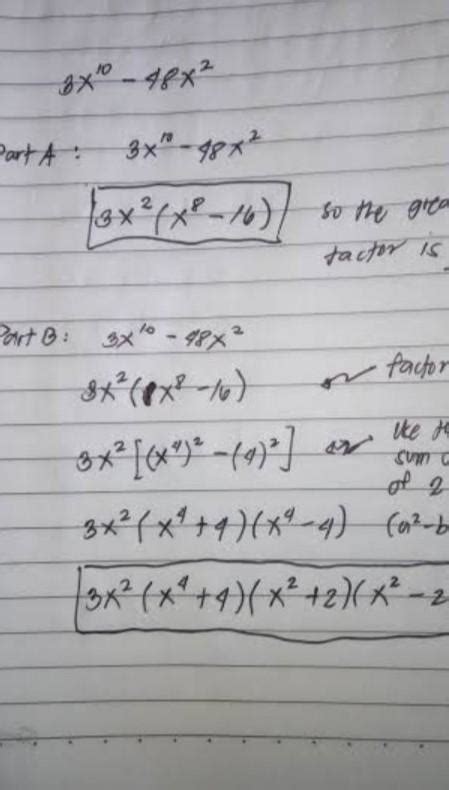 3x¹⁰ - 48x²
Part A : 3x¹⁰ - 48x²
3x²(x⁸ - 16) so the grea
factor is
Part B : 3x¹⁰ - 48x²
3x²(x⁸ - 16) factor
3x²[(x⁴)² - (4)²] Use
sum
of 2
3x²(x⁴ + 4)(x⁴ - 4) (a² - b
3x²(x⁴ + 4)(x² + 2)(x² - 2